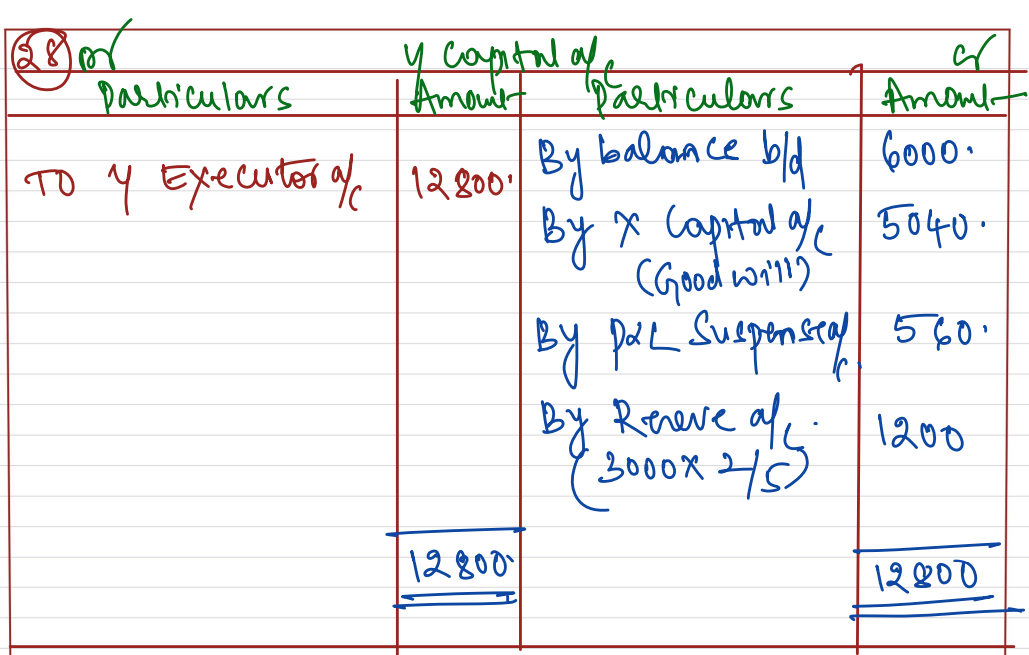 28 Dr Y Capital a/c Cr
Particulars Amount Particulars Amount
To Y Executor a/c 12800. By balance b/d 6000.
By X Capital a/c 5040.
(Goodwill)
By P&L Suspense a/c. 560.
By Reserve a/c. 1200
(3000 X 2/5)
12800. 12800